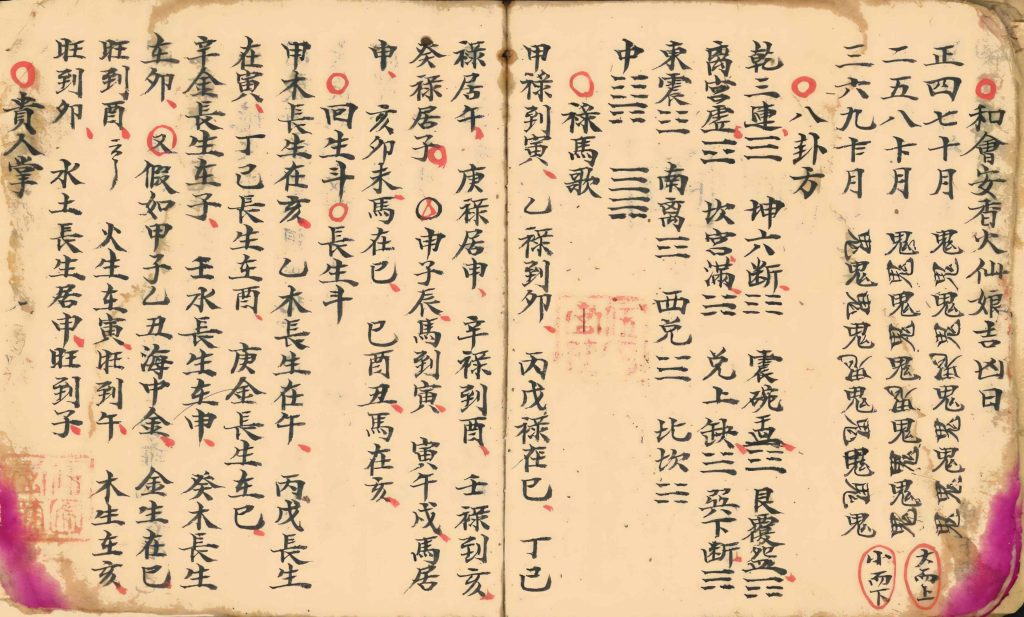 ○和會安香火仙娘吉凶日
正四七十月 鬼鬼鬼鬼鬼鬼鬼鬼鬼 大而上
二五八卡月 鬼鬼鬼鬼鬼鬼鬼鬼鬼 小而下
三六九卡月 鬼鬼鬼鬼鬼鬼鬼鬼鬼
○八卦方
乾三連☰ 坤六断☷ 震碗盂☳ 艮覆盌☶
离宮虚☲ 坎宮滿☵ 兑上缺☱ 巽下断☴
東震☳ 南离☲ 西兑☱ 北坎☵
中
○禄馬歌
甲禄到寅、乙禄到卯、丙戊禄在巳、丁己
禄居午、庚禄居申、辛禄到酉、壬禄到亥、
癸禄居子○申子辰馬到寅、寅午戍馬居
申、亥卯未馬在巳、巳酉丑馬在亥、
○回生斗○長生斗
甲木長生在亥、乙木長生在午、丙戊長生
在寅、丁己長生在酉、庚金長生在巳、
辛金長生在子、壬水長生在申、癸木長生
在卯、又假如甲子乙丑海中金 金生在巳
旺到酉、火生在寅、旺到午、木生在亥、
旺到卯、水土長生居申、旺到子、
○貴人掌